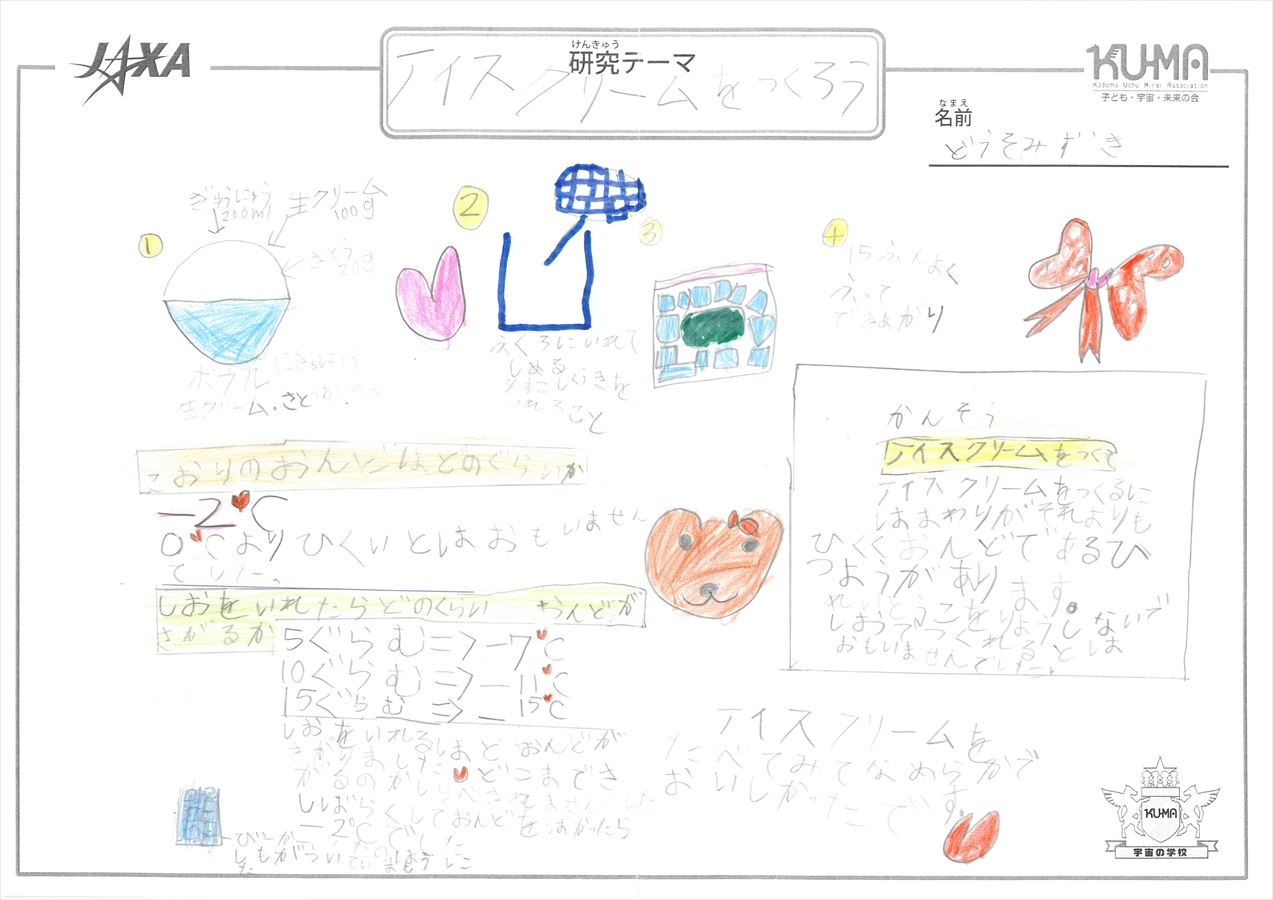 JAXA
けんきゅう
研究テーマ
アイスクリームをつくろう
KU-MA
Kodomo Uchu Mirai Association
子ども・宇宙・未来の会
なまえ
名前
どうそみずき
1
ぎゅうにゅう
200ml
生クリーム
100g
さとう
20g
ボウル
生クリーム・さとう
2
ふくろにいれて
しめる
すこしくうきを
いれること
3
4
15ふんよく
ふって
できあがり
こおりのおんどはどのぐらいか
-2℃
0℃よりひくいとはおもいません
でした。
しおをいれたらどのくらい おんどが
さがるか
5ぐらむ=>-7℃
10ぐらむ=>-11℃
15ぐらむ=>-15℃
しおをいれるほどおんどが
さがりました
どこまでさ
がるのか
しばらくしておんどをはかったら
-2℃でした
かんそう
アイスクリームをつくて
アイスクリームをつくるに
はまわりがそれよりも
ひくくおんどであるひ
つようがあります。
おもいませんでした。
アイスクリームを
たべてみてなめらかで
おいしかったです。
KU-MA
宇宙の学校